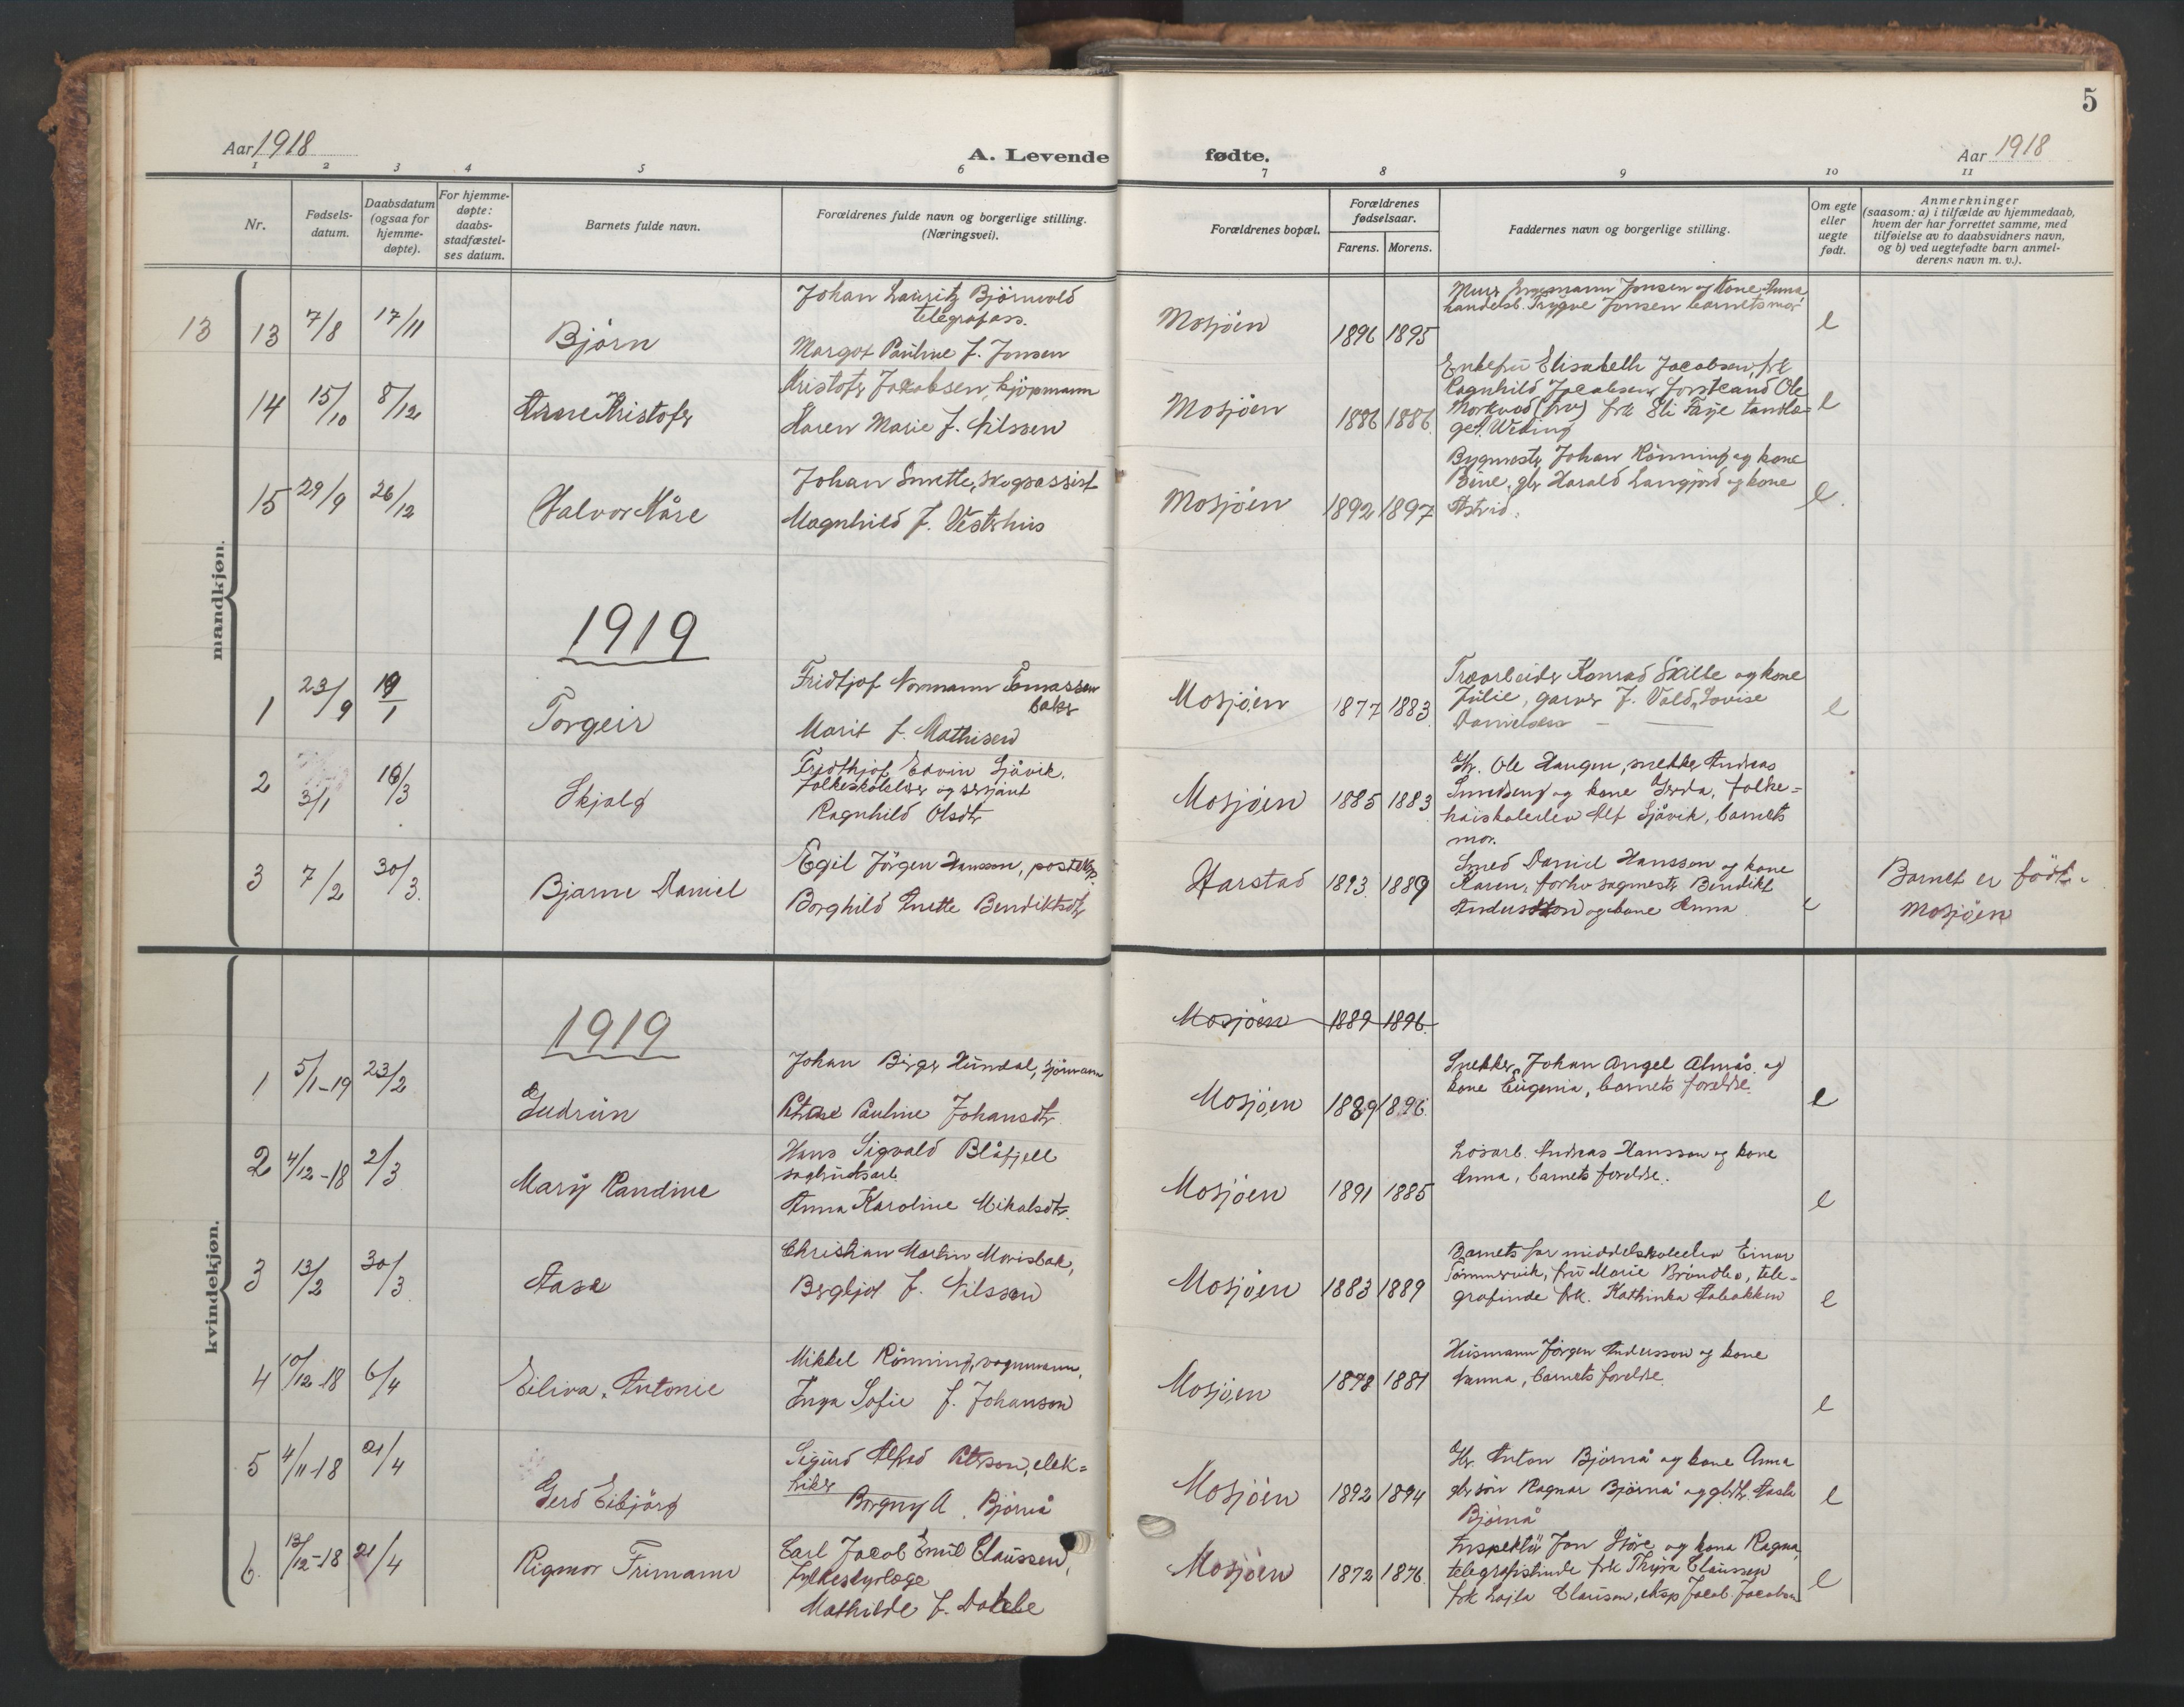 5
Aar 1918
A. Levende fødte.
Aar 1918
1 2 3 4 5 6 7 8 9 10 11
Nr.
Fødsels-
datum.
Daabsdatum
(ogsaa for
hjemme-
døpte).
For hjemme-
døpte:
daabs-
stadfæstel-
ses datum.
Barnets fulde navn.
Forældrenes fulde navn og borgerlige stilling.
(Næringsvei).
Forældrenes bopæl.
Forældrenes
fødselsaar.
Farens. Morens.
Faddernes navn og borgerlige stilling.
Om egte
eller
uegte
født.
Anmerkninger
(saasom: a) i tilfælde av hjemmedaab,
hvem der har forrettet samme, med
tilføielse av to daabsvidners navn,
og b) ved uegtefødte barn anmel-
derens navn m. v.).
mandkjøn.
13 13 7/8 17/11
Bjørn
Johan Lauritz Bjørnvold
telegrafass.
Margot Pauline f. Jonsen
Mosjøen 1896 1895
Murer Jonsen og kone Anna
handelsb. Trygve Jonsen barnets mor
e
14 15/10 8/12
Arne Kristofer
Kristofer Jakobsen, kjøpmann
Karen Marie f. Nilssen
Mosjøen 1886 1886
Enkefru Elisabeth Jacobsen, frk
Ragnhild Jacobsen, forstcand Ole
(frv) frk Eli tandlæ-
ge
e
15 29/9 26/12
Halvor Kåre
Johan Smette, skogassist
Magnhild f. Vesterhus
Mosjøen 1892 1897
Bygmester Johan Rønning og kone
gbr Harald Langjord og kone
Astrid.
e.
1919
1 23/9 19/1
Torgeir
Fridtjof Normann Tomassen
baker
Marit f. Mathisen
Mosjøen 1877 1883
Træarbeider Konrad Skille og kone
Julie, garver J. Vold, Lovise
Danielsen
e
2 3/1 16/3
Skjalg
Fridthjof Edvin Sjåvik.
folkeskolelærer og sersjant
Ragnhild Olsdtr
Mosjøen 1885 1883
Gbr. Ole Haugen, snekker Andreas
og kone Gerda, folke-
høiskoleelev Alf Sjåvik, barnets
mor.
3 7/2 30/3
Bjarne Daniel
Egil Jörgen Hansson, posteksp.
Borghild Anette Bendiktsdtr
Harstad 1893 1889
Smed Daniel Hansson og kone
Karen, forhv sagmester Bendikt
Andersson og kone Anna
e
Barnet er födt
Mosjøen
kvindekjøn.
1919
Mosjøen 1889 1896
1 5/1-19 23/2
Gudrun
Johan Birger Hundal, sjømann
Petrine Pauline Johansdtr
Mosjøen 1889 1896
Snekker Johan Angel Almås og
kone Eugenia, barnets foreldre
e
2 4/12-18 2/3
Mary Randine
Hans Sigvald Blåfjell
sagbruksarb.
Anna Karoline Mikalsdtr.
Mosjøen 1891 1885
Løsarb. Andreas Hansson og kone
Anna, barnets foreldre.
e
3 13/2 30/3
Aase
Christian Martin Morisbak,
Bergljot f. Nilsson
Mosjøen 1883 1889
Barnets far middelskoleelev Einar
Tømmervik, fru Marie Brøndbo, tele-
grafinde frk. Kathinka
e
4 10/12-18 6/4
Eiliva, Antonie
Mikkel Rønning, vognmann,
Inga Sofie f. Johanson
Mosjøen 1878 1881
Husmann Jørgen Andersson og kone
Hanna, barnets foreldre.
e
5 4/11-18 21/4
Gerd Eibjørg
Sigurd Alfred Peterson, elek-
triker
Borgny A. Bjørnå
Mosjøen 1892 1894
Gbr. Anton Bjørnå og kone Anna
gbr.søn Ragnar Bjørnå og gbdtr. Aasta
Bjørnå
e
6 13/12-18 21/4
Rigmor Frimann
Carl Jacob Emil Claussen,
fylkesdyrlæge
Mathilde f. Dahle
Mosjøen 1872 1876
Inspektør Jon Støre og kona Ragna,
telegrafistinde frk Thyra Claussen
frk Lajla Clausen, eksp Jacob Jacobsen
e